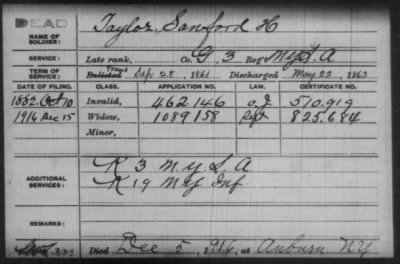 DEAD
NAME OF SOLDIER: Taylor, Sanford H
SERVICE: Late rank, Co. G, 3 Reg't N.Y.L.A
TERM OF SERVICE: Enlisted Trans Sep 25, 1861 Discharged May 22, 1863
DATE OF FILING. CLASS. APPLICATION NO. LAW. CERTIFICATE NO.
1882 Oct 10 Invalid, 462146 O.L 510.919
1916 Dec 15 Widow, 1089158 825.684
Minor,
ADDITIONAL SERVICES: K 3 N.Y.L.A
K 19 N.Y. Inf
REMARKS:
Died Dec 5, 1916, at Auburn N.Y.